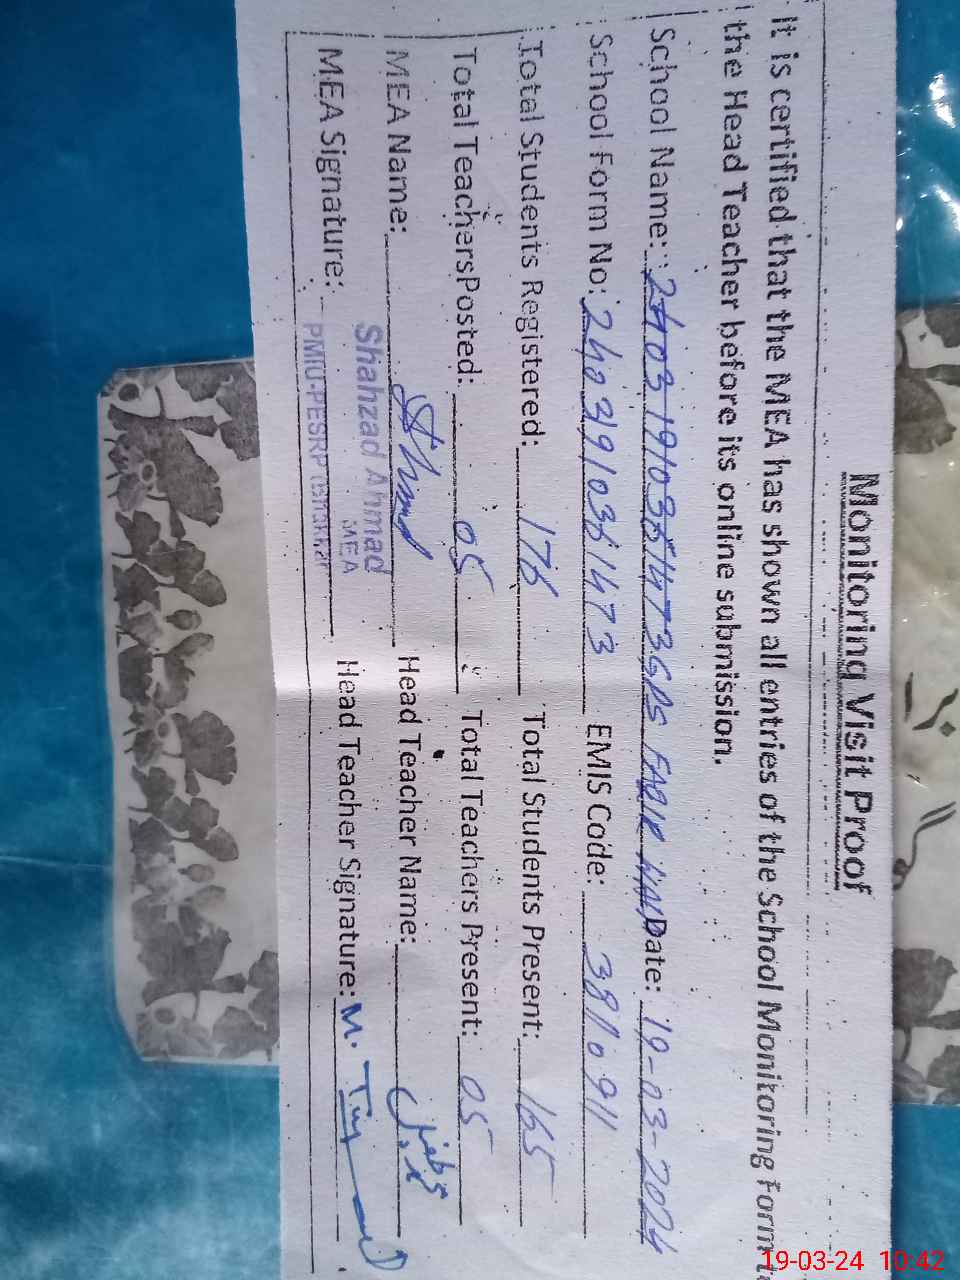 Monitoring Visit Proof
It is certified that the MEA has shown all entries of the School Monitoring Form to
the Head Teacher before its online submission.
School Name: Date: 19-03-2024
School Form No: EMIS Code: 3810911
Total Students Registered: 176 Total Students Present: 165
Total TeachersPosted: 05 Total Teachers Present: 05
MEA Name: Head Teacher Name:
Shahzad Ahmad
MEA
MEA Signature: Head Teacher Signature: M.
PMIU-PESRP
19-03-24 10:42